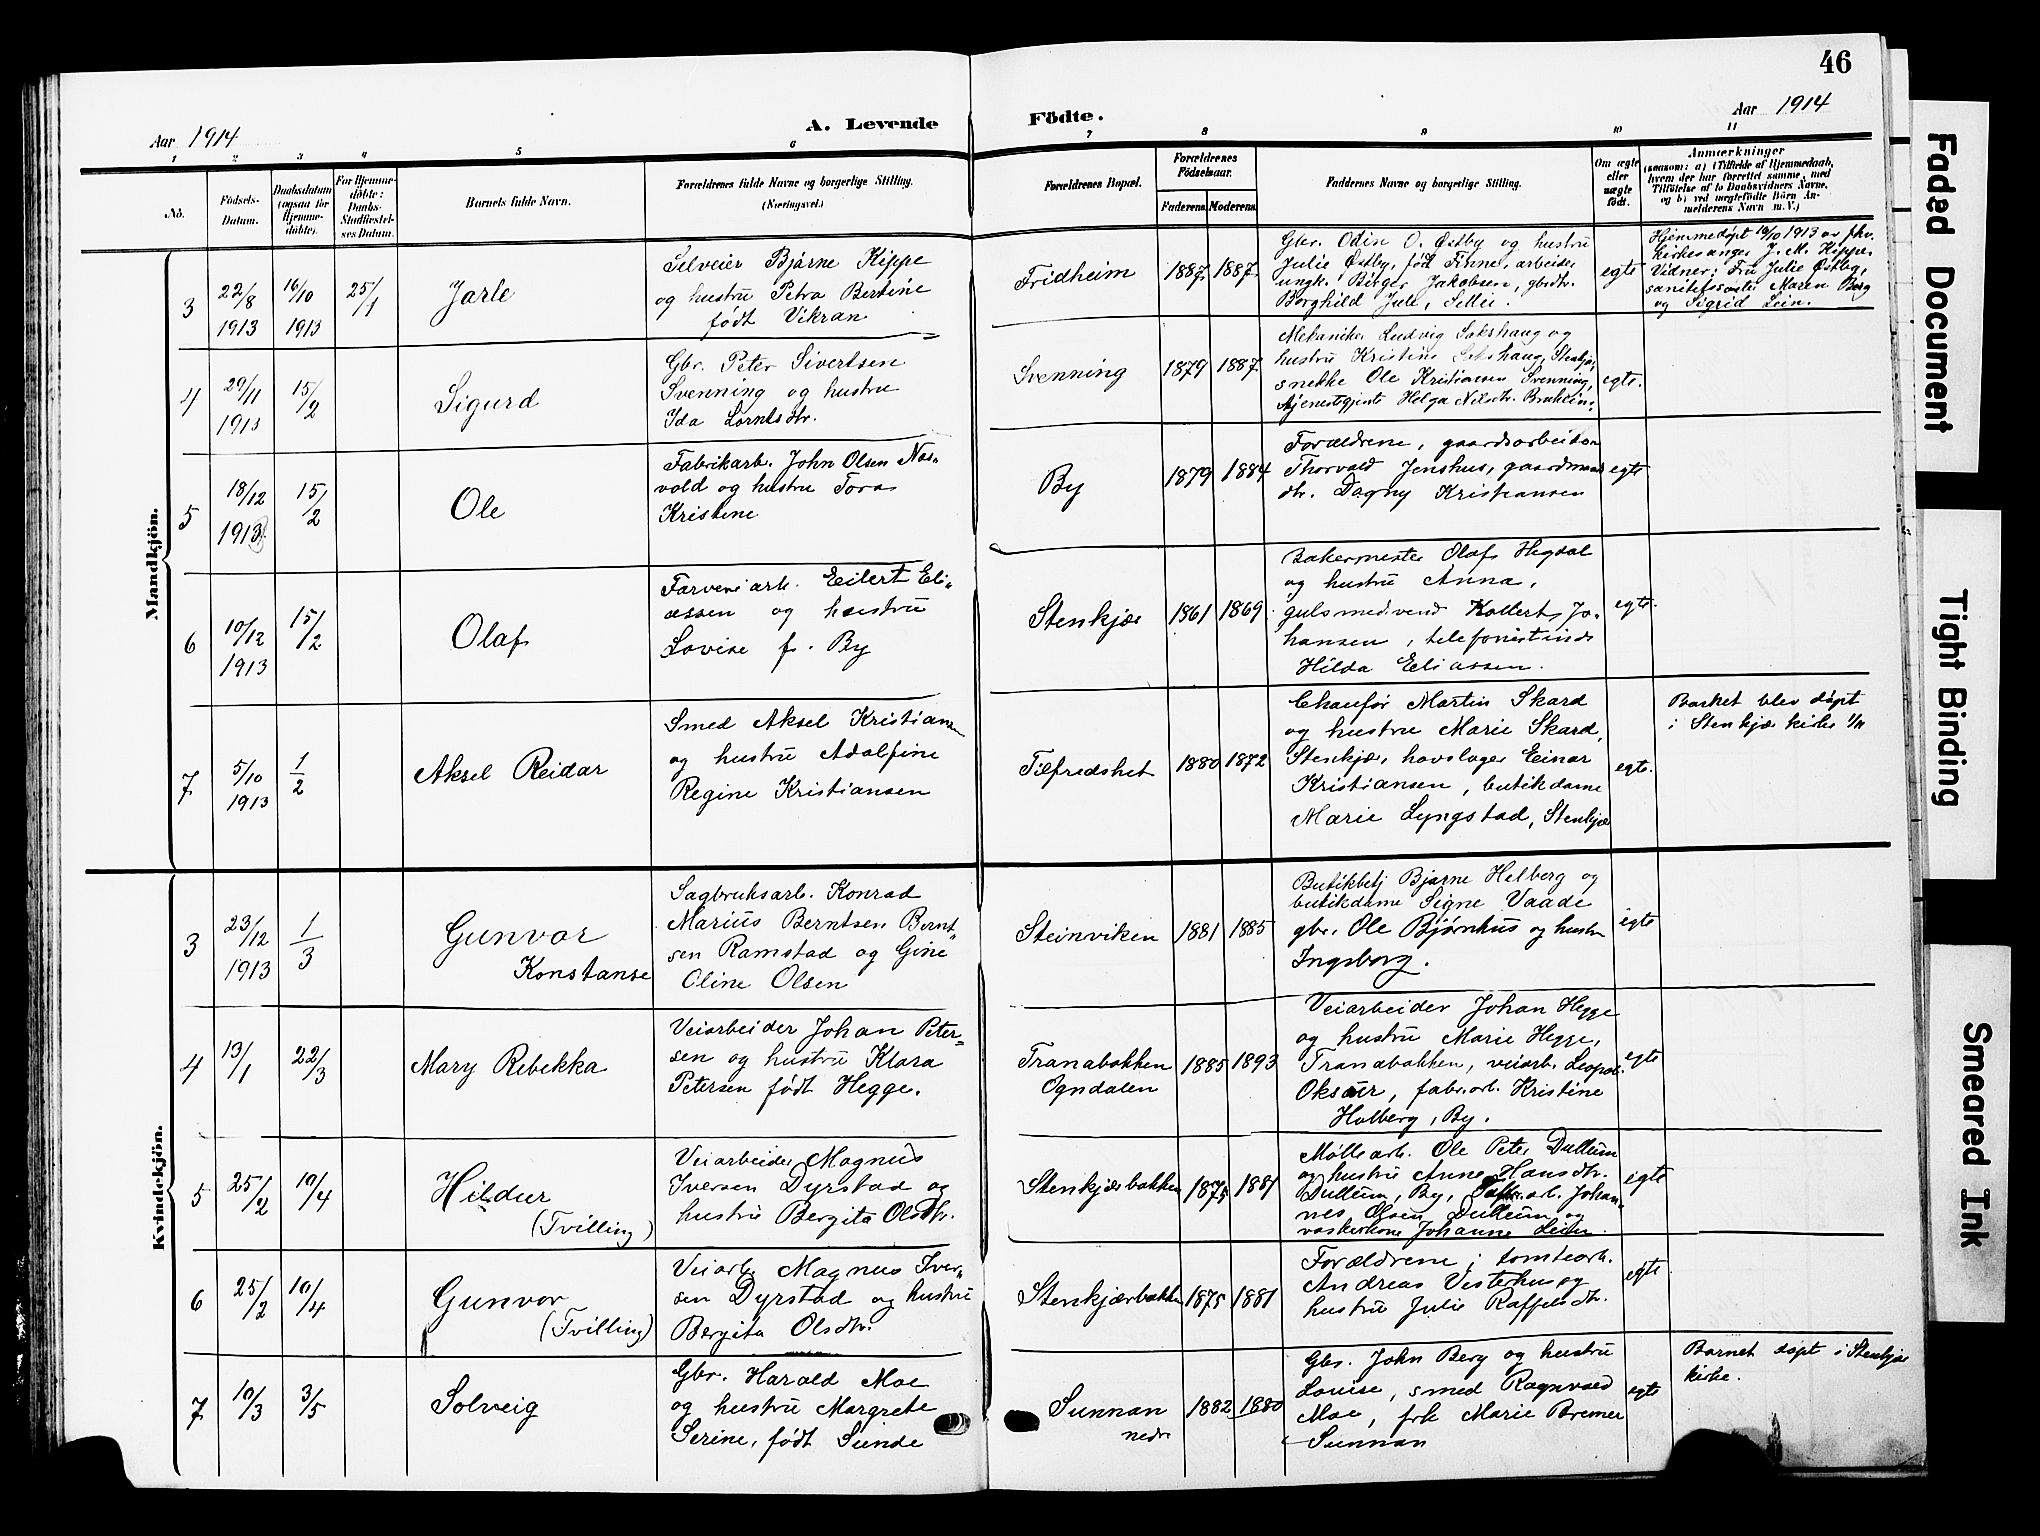 46
Aar 1914
A. Levende
Födte.
Aar 1914
1 2 3 4 5 6 7 8 9 10 11
No.
Fødsels-
Datum.
Daabsdatum
(ogsaa for
Hjemme-
døbte).
For Hjemme-
döbte:
Daabs-
Stadfæstel-
ses Datum.
Barnets fulde Navn.
Forældrenes fulde Navne og borgerlige Stilling.
(Næringsvei.)
Forældrenes Bopæl.
Forældrenes
Födselsaar.
Faderens. Moderens.
Faddernes Navne og borgerlige Stilling.
Om ægte
eller
uægte
født.
Anmærkninger
(saasom: a) i Tilfælde af Hjemmedaab,
hvem der har forrettet samme, med
Tilföielse af to Daabsvidners Navne,
og b) ved uægtefödte Börn An-
melderens Navn m. V.)
Mandkjön.
3
22/8
1913
16/10
1913
25/1
Jarle
Selveier Bjarne Kippe
og hustru Petra Bertine
født Vikran
Fridheim
1887. 1887.
Gbr. Odin O. Østby og hustru
Julie Østby, født Finne, arbeider
ungk. Birger Jakobsen, gbrdtr.
Borghild Jule, Sellie.
egte
Hjemmedøpt 16/10 1913 av fhv.
kirkesanger J. M. Kippe.
Vidner: Fru Julie Østby,
Maren Berg
og Sigrid Lein.
4
29/11
1913
15/2
Sigurd
Gbr. Peter Sivertsen
Svenning og hustru
Ida Lorntsdtr.
Svenning
1879 1887
Mekaniker Ludvig Sakshaug og
hustru Kristine Sakshaug, Stenkjær,
snekker Ole Kristiansen Svenning,
tjenestepjente Helga Nilsdtr.
egte.
5
18/12
1913
15/2
Ole
Fabrikarb. John Olsen Nas-
vold og hustru Tora
Kristine
By
1879 1884
Forældrene, gaardsarbeider
Thorvald Jenshus, gaardmands
dtr. Dagny Kristiansen
egte.
6
10/12
1913
15/2
Olaf
Farveriarb. Eilert Eli-
assen og hustru
Lovise f. By
Stenkjær
1861 1869
Bakermester Olaf Hegdal
og hustru Anna,
gulsmedsvend Kollert Jo-
hansen, telefonistinde
Hilda Eliassen.
egte.
7
5/10
1913
1/2
Aksel Reidar
Smed Aksel Kristiansen
og hustru Adolfine
Regine Kristiansen
Tilfredshet
1880 1872
Chaufør Martin Skard
og hustru Marie Skard,
Stenkjær, hovslager Einar
Kristiansen, butikdame
Marie Lyngstad, Stenkjær
egte.
Barnet blev døpt
i Stenkjær kirke 1/11
Kvindekjön.
3
23/12
1913
1/3
Gunvor
Konstanse
Sagbruksarb. Konrad
Marius Berntsen Bernt-
sen Ramstad og Gine
Oline Olsen
Steinviken
1881 1885
Butikbetj Bjarne Helberg og
butikdame Signe Vaade
gbr. Ole Bjørnhus og hustru
Ingeborg.
egte
4
13/1
22/3
Mary Rebekka
Veiarbeider Johan Peter-
sen og hustru Klara
Petersen født Hegge.
Tranabakken
Ogndalen
1885 1893
Veiarbeider Johan Hegge
og hustru Marie Hegge,
Tranabakken, veiarb. Leopold
fabr.arb. Kristine
Holberg, By.
egte
5
25/2
10/4
Hildur
(Tvilling)
Veiarbeider Magnus
Iversen Dyrstad og
hustru Bergita Olsdtr.
Stenkjærbakken
1875 1881
Møllearb. Ole Peter Dullum
og hustru Anne Hansdtr.
Dullum, By, arb. Johan-
nes Olsen Dullum og
vaskerkone Johanne Leien.
egte
6
25/2
10/4
Gunvor
(Tvilling)
Veiarb. Magnus Iver-
sen Dyrstad og hustru
Bergita Olsdtr.
Stenkjærbakken
1875 1881
Forældrene; tomtearb.
Andreas Vesterhus og
hustru Julie Raffelsdtr.
egte
7
10/3
3/5
Solveig
Gbr. Harald Moe
og hustru Margrete
Serine, født Sunde
Sunnan
nedre
1882 1880
Gbr. John Berg og hustru
Louise, smed Ragnvald
Moe, frk Marie Bremer
Sunnan
egte
Barnet døpt i Stenkjær
kirke.
Faded Document
Tight Binding
Smeared Ink